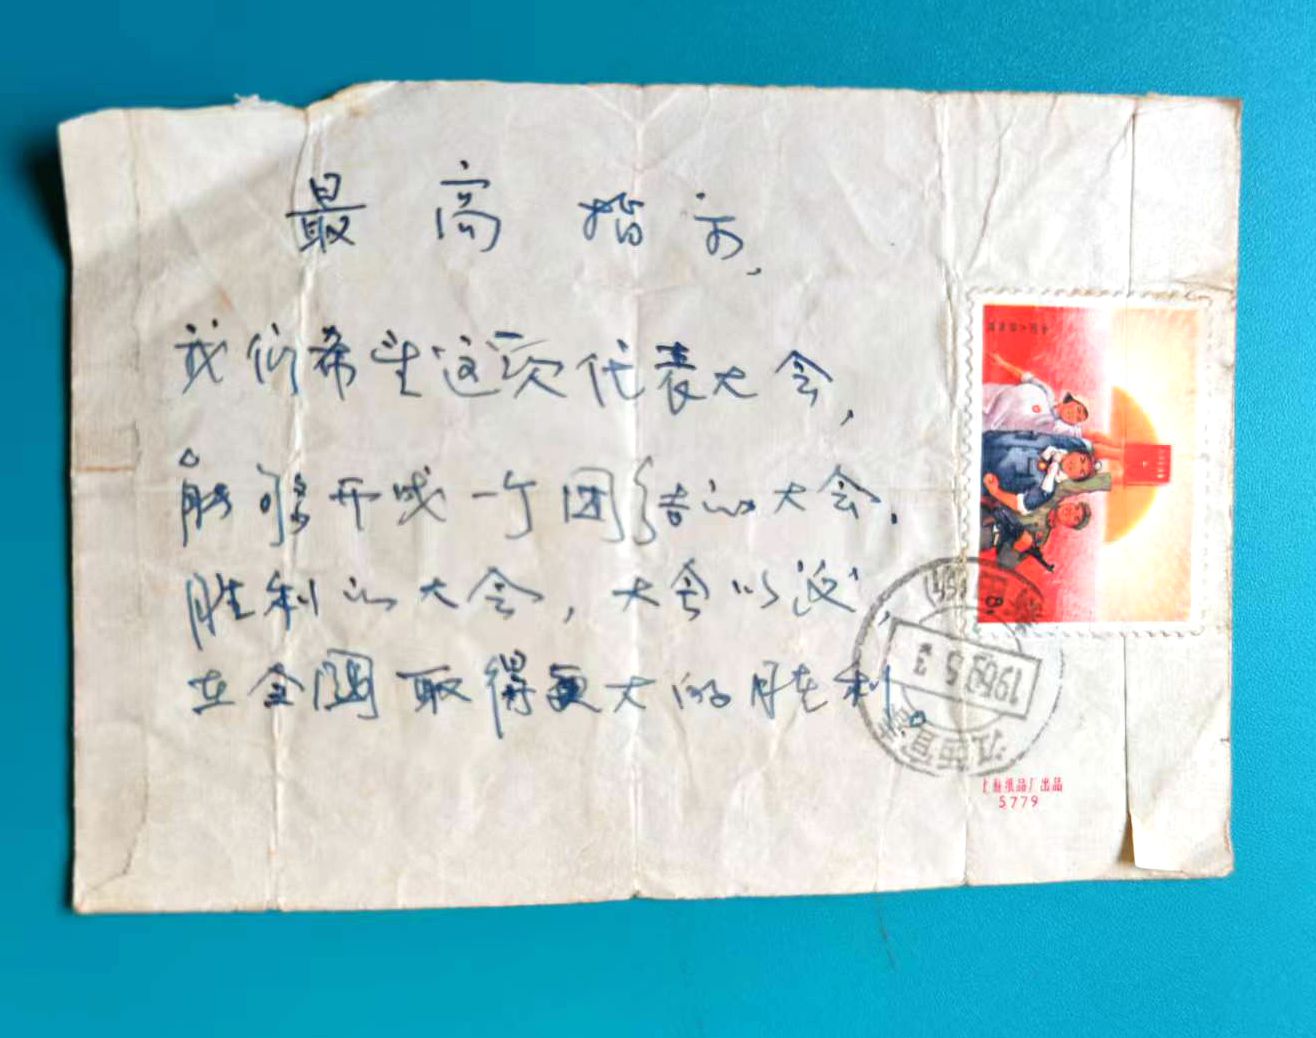 最高指示,
我们希望这次代表大会,
能够开成一个团结的大会.
胜利的大会,大会以后,
在全国取得更大的胜利。
1969.5.3
江西宜春
上海纸品厂出品
5779